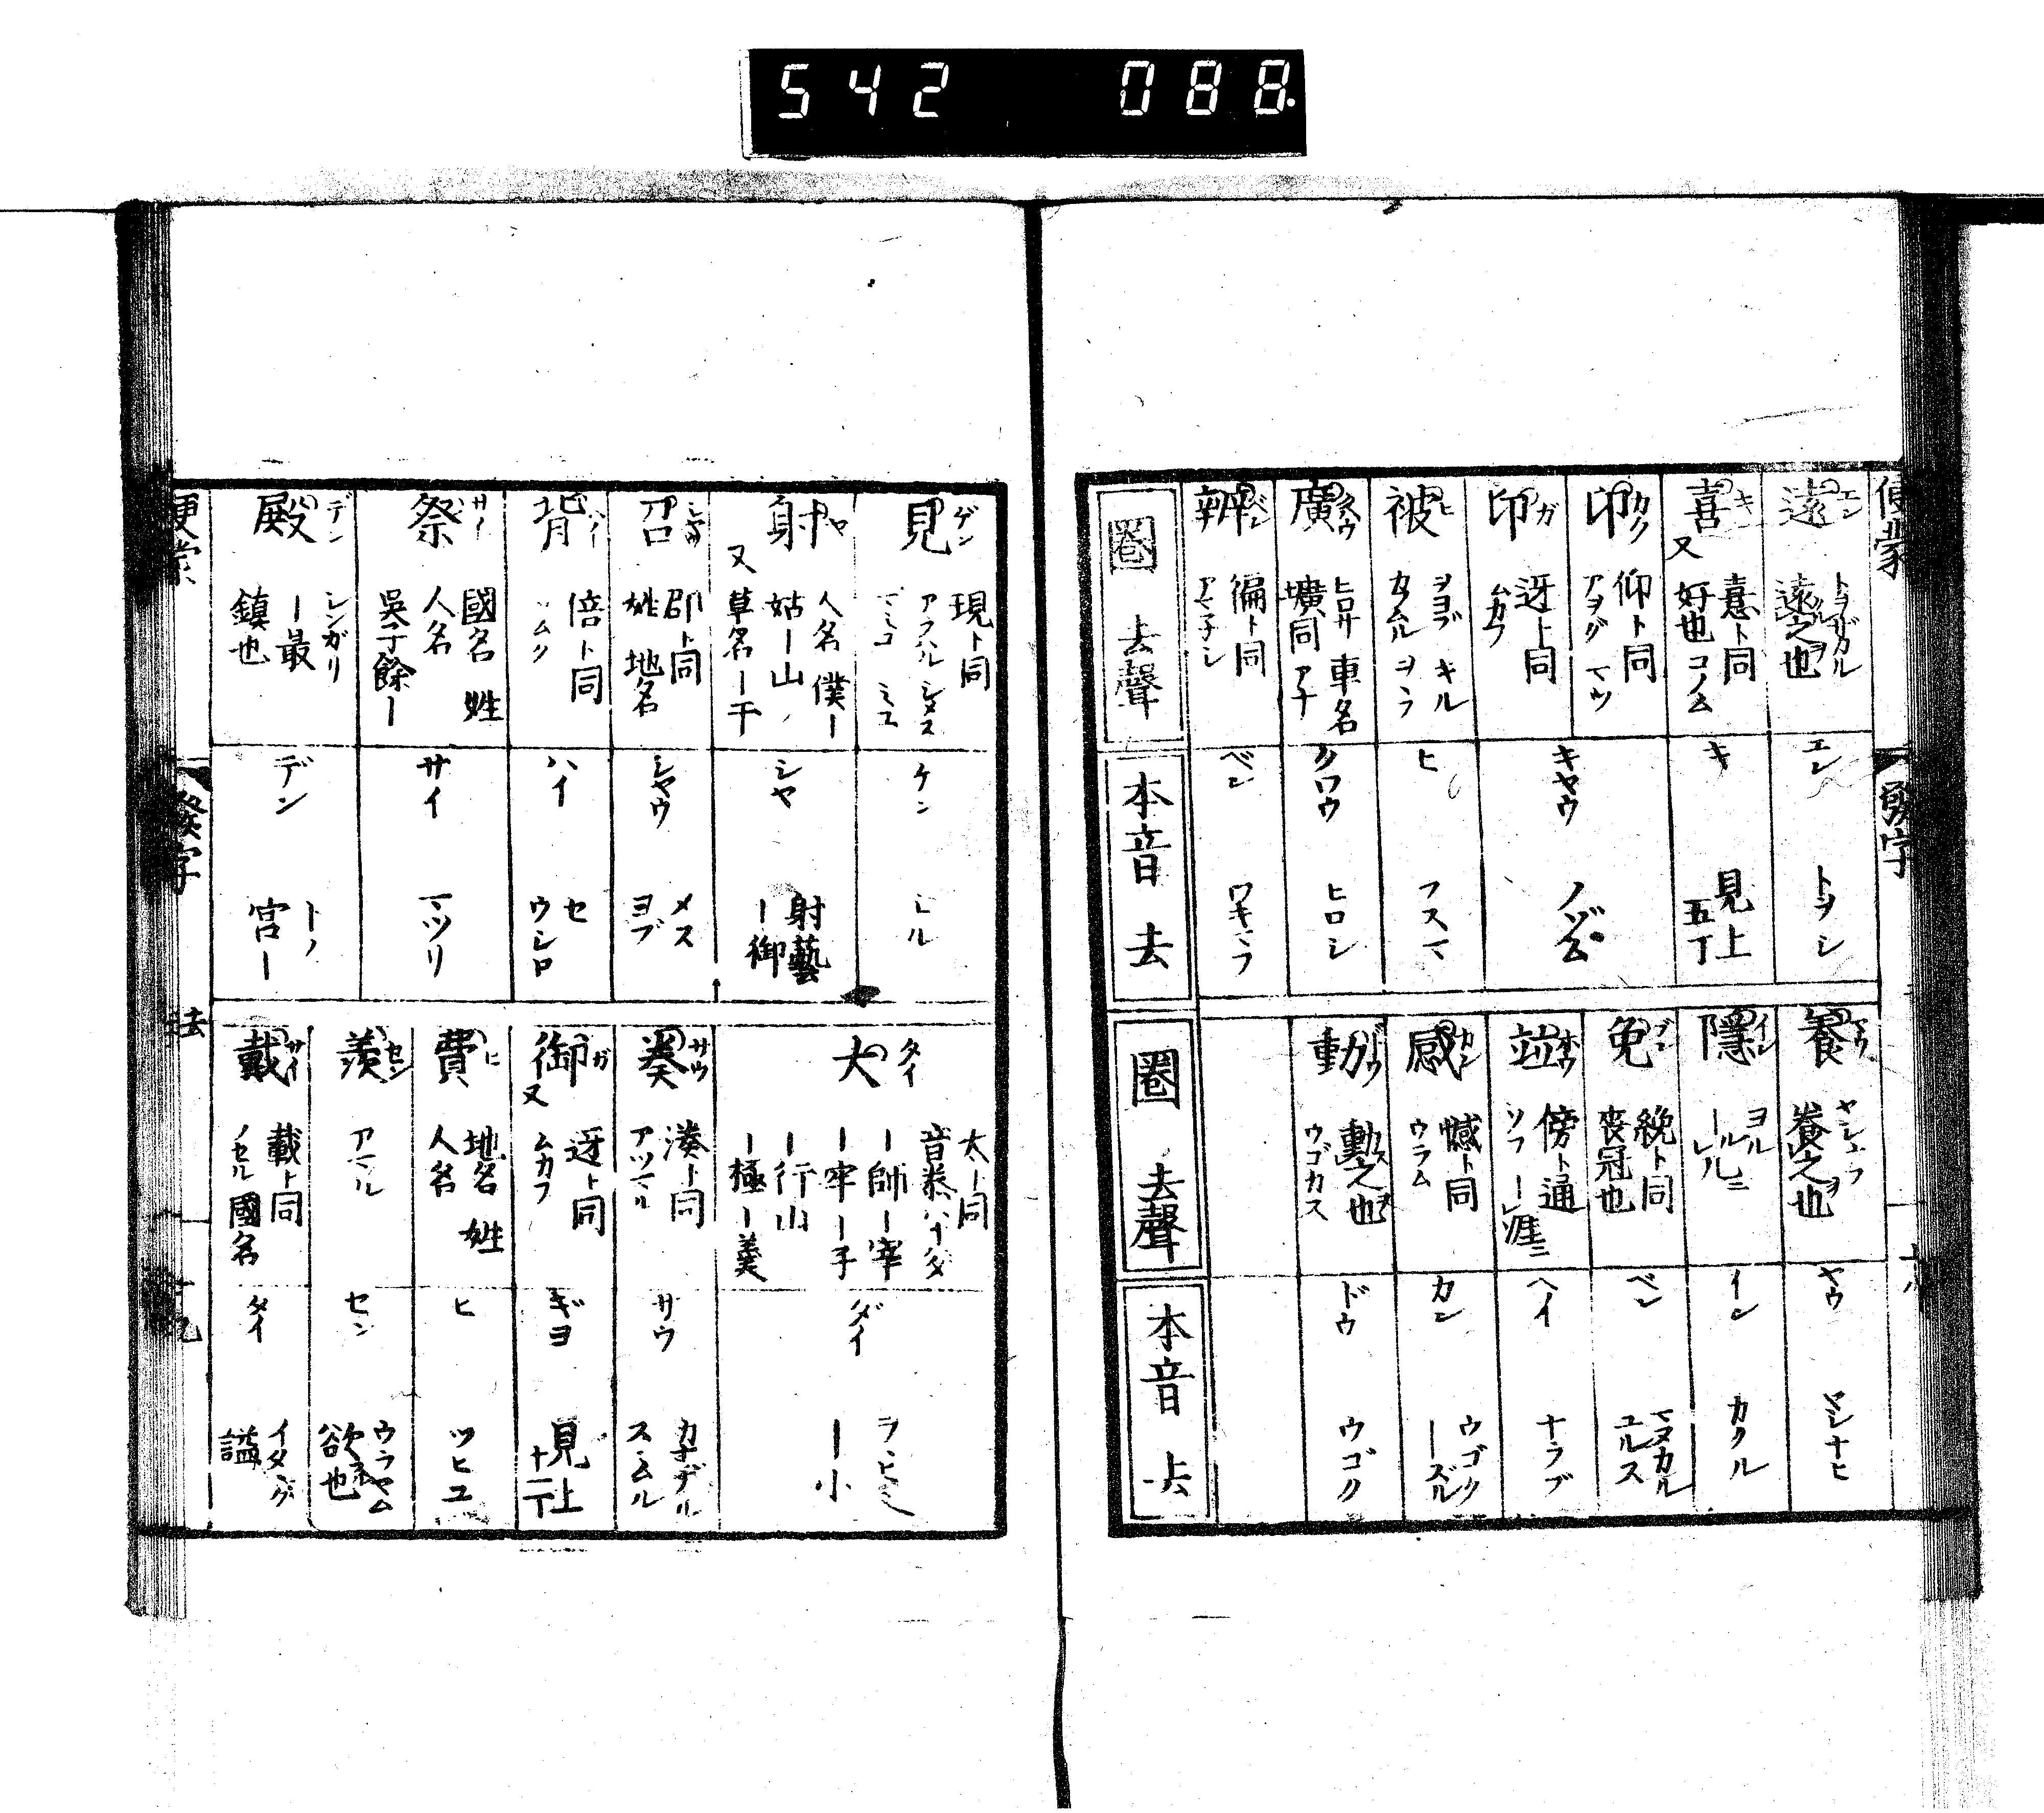 542 088
便蒙
發字
遠 エン
トヲザカル
遠之也
エン
トヲシ
喜 キ
又
憙ト同
好也コノム
キ
見上
五丁
卬 カウ
仰ト同
アヲグ マツ
卬 ガ
迓ト同
ムカフ
キヤウ
ノゾム
被 ヒ
ヲヨブ キル
カムムル ヲヽフ
ヒ
フスマ
廣
ヒロサ 車名
壙同 アナ
クワウ
ヒロシ
辨 ヘン
徧ト同
アマネシ
ベン
ワキマフ
圏 去聲
本音 去
養 ヤウ
ヤシナフ
養之也
ヤウ
ヤシナヒ
隱 イン
ヨル
イン
カクル
免 ブン
絻ト同
喪冠也
ベン
マヌカル
ユルス
竝 ホウ
傍ト通
ソフ
ヘイ
ナラブ
感 カン
憾ト同
ウラム
カン
ウゴク
ーズル
動 ドウ
動之也
ウゴカス
ドウ
ウゴク
圏 去聲
本音 去
見 ゲン
現ト同
アラハル シメス
マミユ ミユ
ケン
ミル
射 ヤ
又
人名 僕ー
姑ー山
草名ー干
シヤ
射藝
ー御
召 シヤウ
邵ト同
姓 地名
シヤウ
メス
ヨブ
背 ハイ
倍ト同
ソムク
ハイ
セ
ウシロ
祭 サイ
國名 姓
人名
吳ー餘ー
サイ
マツリ
殿 デン
シンガリ
ー最
鎮也
デン
トノ
宮ー
大 タイ
太ー同
ー師ー宰
ー牢ー子
ー行山
ー極ー羹
ダイ
ヲヽヒニ
ー小
奏 サウ
湊ト同
アツマル
サウ
カナデル
スヽムル
御 ガ
又
迓ト同
ムカフ
ギヨ
見上
十一丁
費 ヒ
地名 姓
人名
ヒ
ツヒユ
羨 セン
アマル
セン
ウラヤム
欲也
戴 サイ
載ト同
ノセル 國名
タイ
イタヾク
謚
便蒙
發字
去
十九